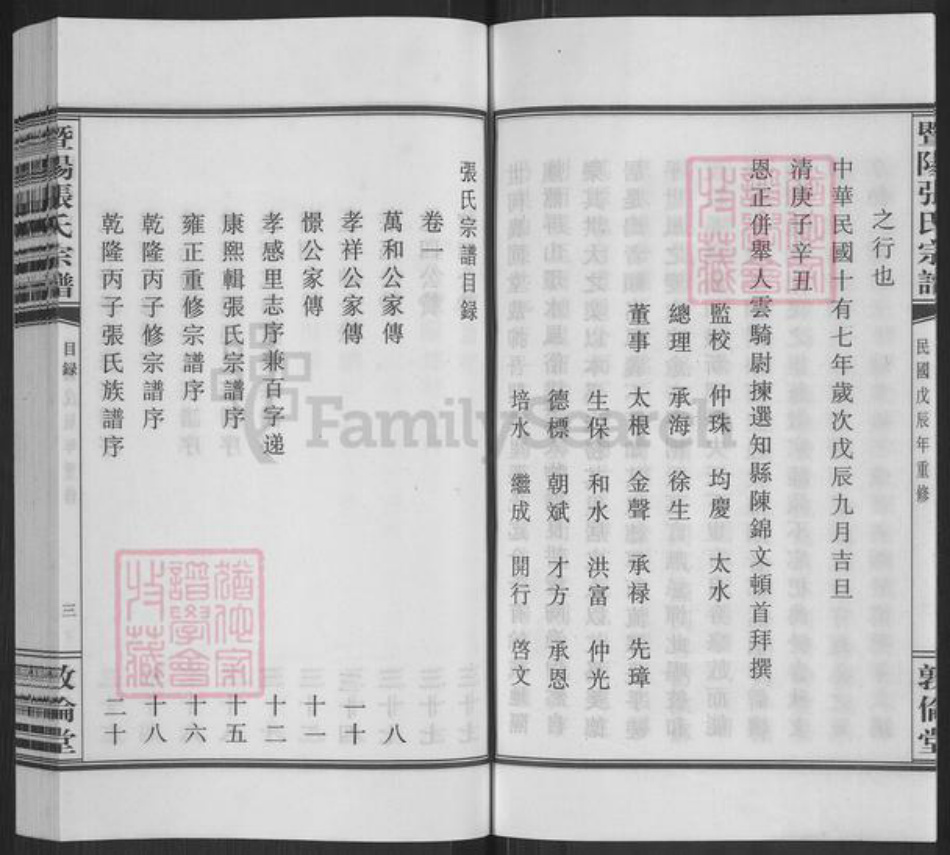 暨陽張氏宗譜
民國戊辰年重修
敦倫堂
之行也
中華民國十有七年歲次戊辰九月吉旦
清庚子辛丑
恩正併舉人雲騎尉揀選知縣陳錦文頓首拜撰
監校 仲珠 均慶 太水
總理 承海 徐生
董事 太根 金聲 承禄 先璋
生保 和水 洪富 仲光
德標 朝斌 才方 承恩
培水 繼成 開行 啓文
張氏宗譜目録
卷一
萬和公家傳 八
孝祥公家傳 一十
憬公家傳 十一
孝感里志序兼百字递 十二
康熙輯張氏宗譜序 十五
雍正重修宗譜序 十六
乾隆丙子修宗譜序 十八
乾隆丙子張氏族譜序 二十
暨陽張氏宗譜
目録
三
敦倫堂
FamilySearch